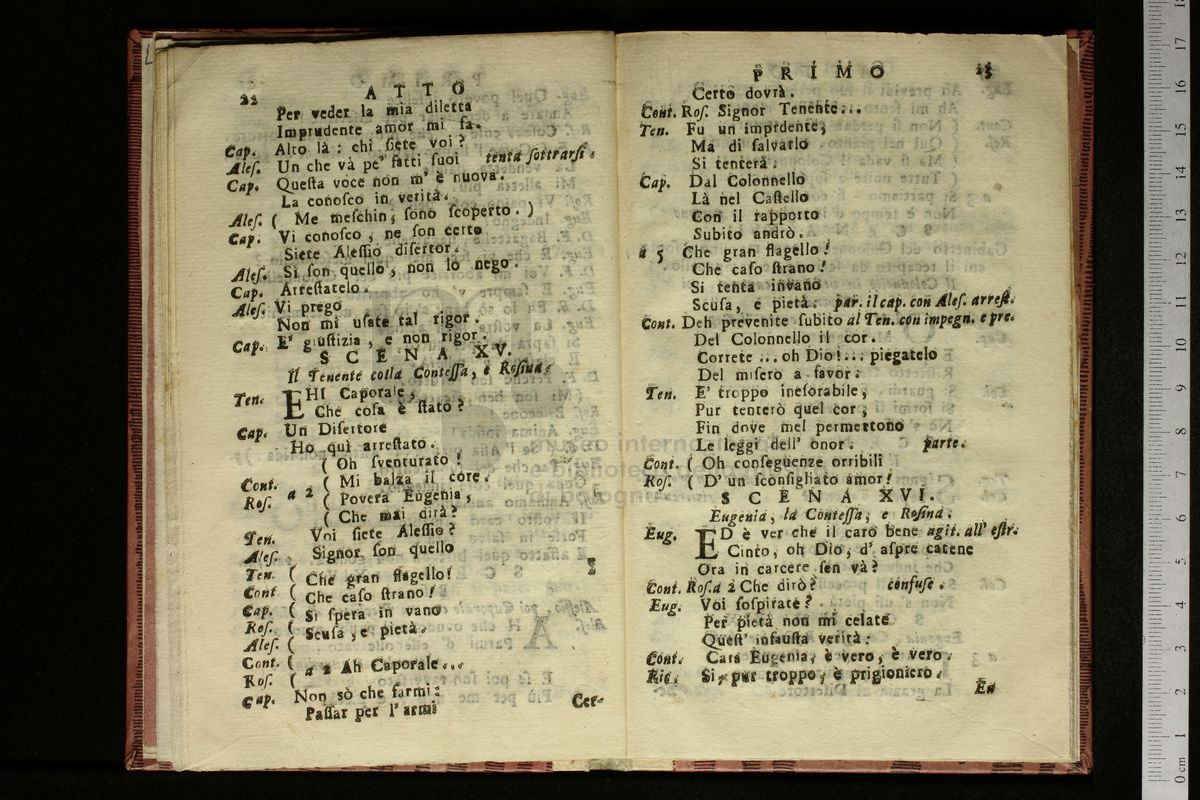 22 ATTO
Per veder la mia diletta
Imprudente amor mi fa.
Cap. Alto là: chi ſiete voi?
Aleſ. Un che và pe' fatti ſuoi tenta ſottrarſi.
Cap. Queſta voce non m' è nuova.
La conoſco in verità.
Aleſ. ( Me meſchin, ſono ſcoperto. )
Cap. Vi conoſco, ne ſon certo
Siete Aleſſio diſertor.
Aleſ. Sì ſon quello, non lo nego.
Cap. Arreſtatelo.
Aleſ. Vi prego
Non mi uſate tal rigor.
Cap. E' giuſtizia, e non rigor.
SCENA XV.
Il Tenente colla Conteſſa, e Roſina.
Ten. EHI Caporale,
Che coſa è ſtato?
Cap. Un Diſertore
Ho quì arreſtato.
( Oh ſventurato!
Cont. ( Mi balza il core.
Roſ. a 2 ( Povera Eugenia,
( Che mai dirà?
Ten. Voi ſiete Aleſſio?
Aleſ. Signor ſon quello
Ten. ( Che gran flagello!
Cont ( Che caſo ſtrano!
Cap. ( Si ſpera in vano
Roſ. ( Scuſa, e pietà.
Aleſ. (
Cont. ( a 2 Ah Caporale...
Roſ. (
Cap. Non sò che farmi:
Paſſar per l'armi
Cer-
PRIMO 23
Certo dovrà.
Cont. Roſ. Signor Tenente...
Ten. Fu un imprdente,
Ma di ſalvarlo
Si tenterà.
Cap. Dal Colonnello
Là nel Caſtello
Con il rapporto
Subito andrò.
a 5 Che gran flagello!
Che caſo ſtrano!
Si tenta invano
Scuſa, e pietà. par. il cap. con Aleſ. arreſt.
Cont. Deh prevenite ſubito al Ten. con impegn. e pre.
Del Colonnello il cor.
Correte ... oh Dio!... piegatelo
Del miſero a favor.
Ten. E' troppo ineſorabile,
Pur tenterò quel cor,
Fin dove mel permettono
Le leggi dell' onor. parte.
Cont. ( Oh conſeguenze orribili
Roſ. ( D' un ſconſigliato amor!
SCENA XVI.
Eugenia, la Conteſſa, e Roſina.
Eug. ED è ver che il caro bene agit. all' eſtr.
Cinto, oh Dio, d' aſpre catene
Ora in carcere ſen và?
Cont. Roſ.a 2 Che dirò? confuſe.
Eug. Voi ſoſpirate?
Per pietà non mi celate
Queſt' infauſta verità.
Cont. Cara Eugenia, è vero, è vero.
Si, pur troppo, è prigioniero.